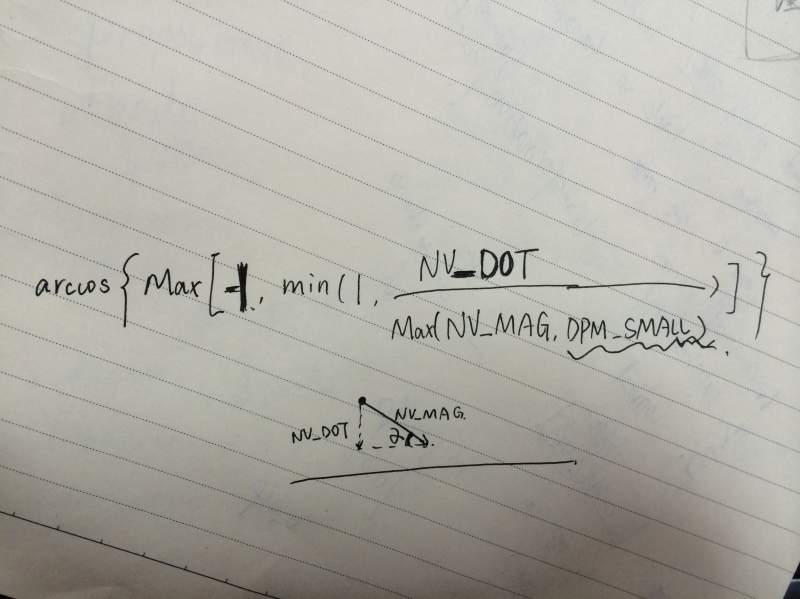 arccos { Max [ -1, min ( 1, NV_DOT / Max(NV_MAG, DPM_SMALL) ) ] }
NV_MAG.
NV_DOT